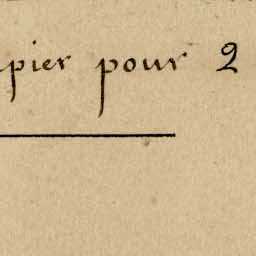 pier pour 2